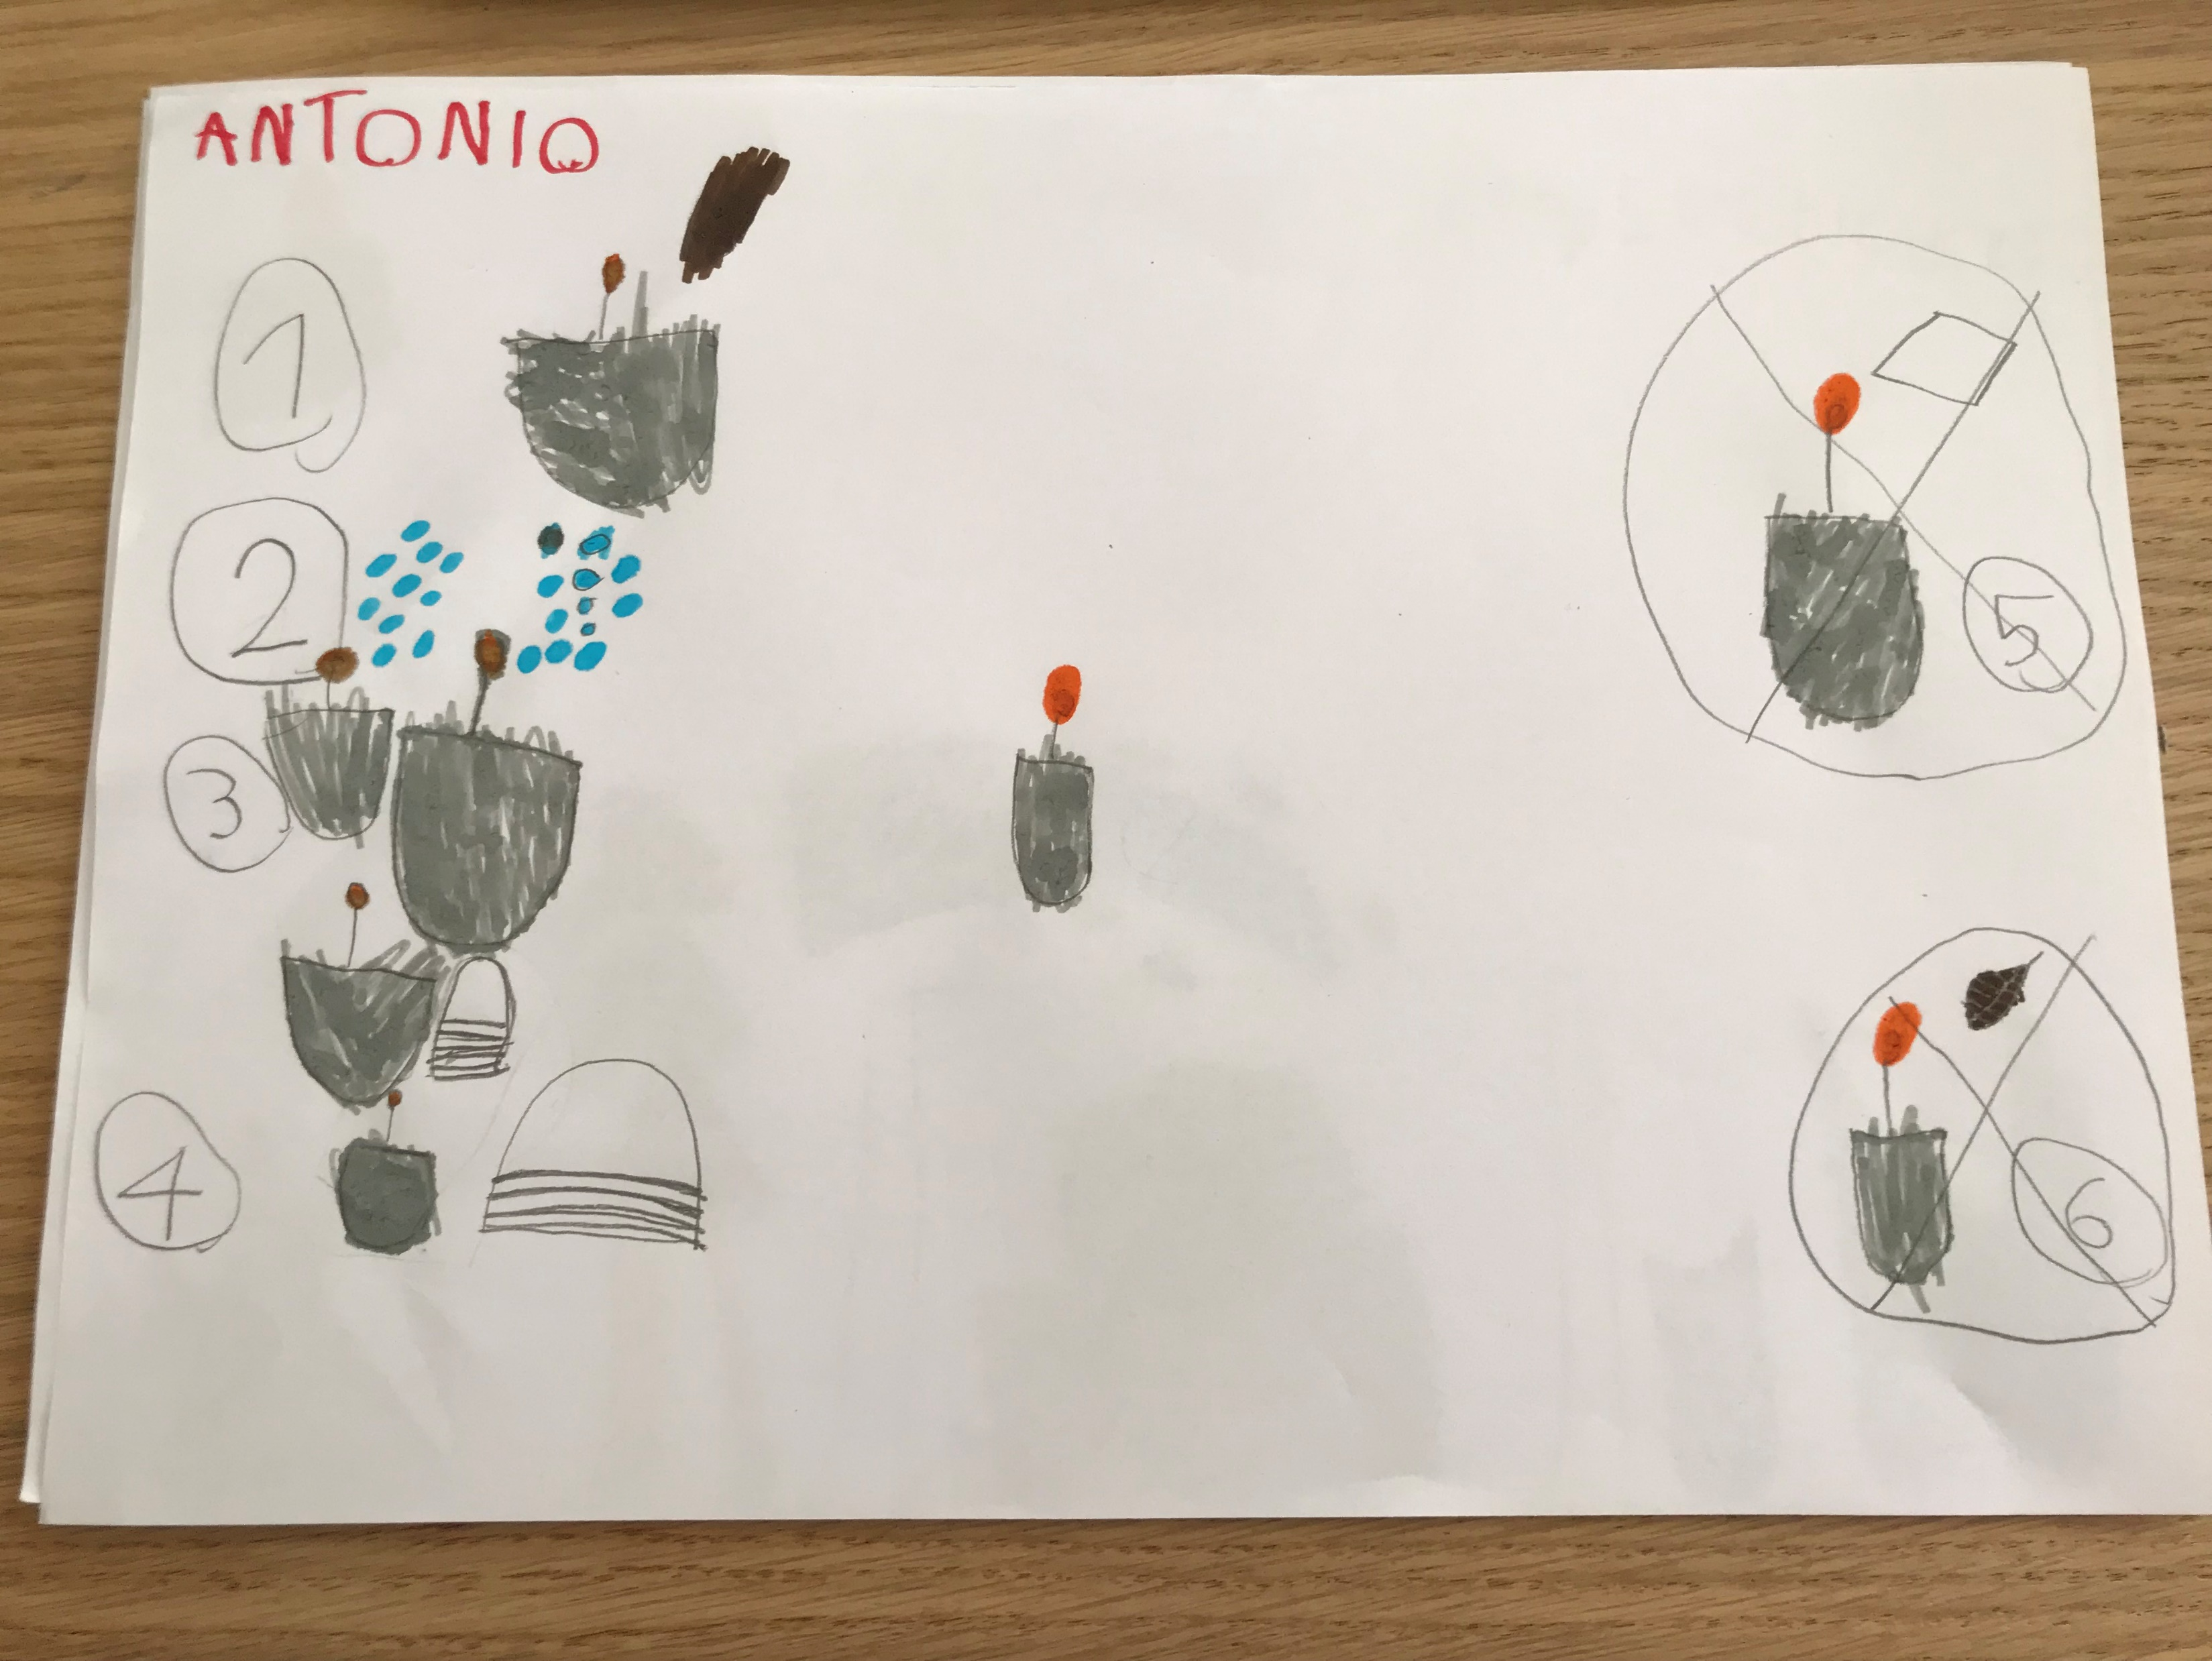 ANTONIO
1
2
3
4
5
6